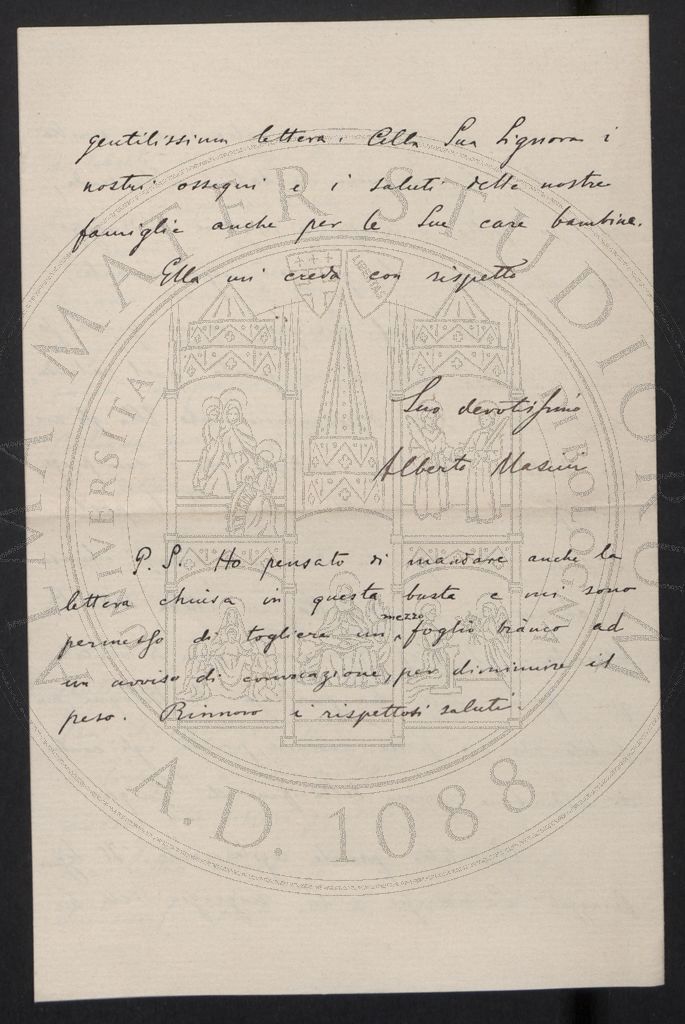 gentilissima lettera. Alla Sua Signora i
nostri ossequi e i saluti delle nostre
famiglie anche per le Sue care bambine.
Ella mi creda con rispetto
Suo devotissimo
Alberto Masini
P. S. Ho pensato di mandare anche la
lettera chiusa in questa busta e mi sono
permesso di togliere un mezzo foglio bianco ad
un avviso di convocazione, per diminuire il
peso. Rinnovo i rispettosi saluti.
ALMA MATER STUDIORUM
UNIVERSITÀ DI BOLOGNA
LIBERTAS
A.D. 1088